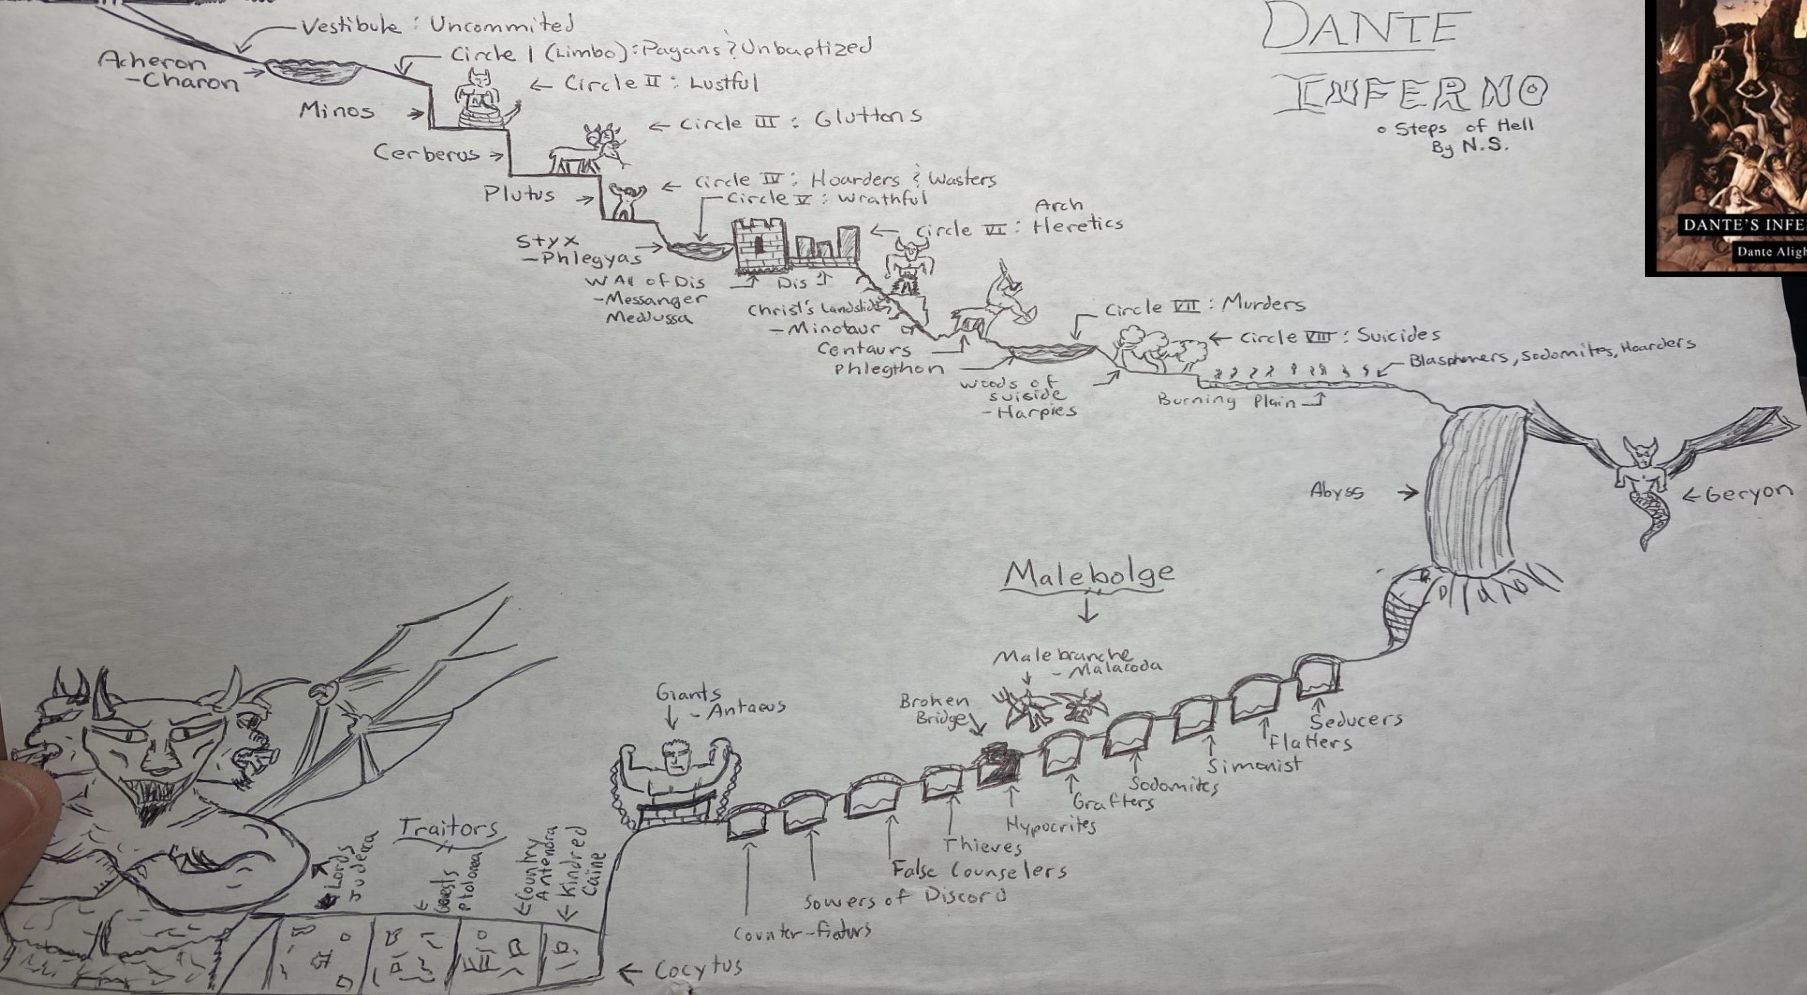 DANTE
INFERNO
Steps of Hell
By N.S.
DANTE'S INFE
Dante Aligh
Vestibule : Uncommited
Acheron
-Charon
Circle I (Limbo) : Pagans & Unbaptized
Circle II : Lustful
Minos
Circle III : Gluttons
Cerberus
Circle IV : Hoarders & Wasters
Plutus
Circle V : Wrathful
Styx
-Phlegyas
Arch
Circle VI : Heretics
Wall of Dis
-Messanger
Meddussa
Dis
Christ's Landslide
-Minotaur
Centaurs
Phlegthon
Circle VII : Murders
Woods of
suiside
-Harpies
Circle VIII : Suicides
Blasphemers, Sodomites, Hoarders
Burning Plain
Abyss
Geryon
Malebolge
Malebranche
- Malacoda
Broken
Bridge
Giants
- Antaeus
Seducers
Flatters
Simonist
Sodomites
Grafters
Hypocrites
Thieves
False Counselers
Sowers of Discord
Counter-fieturs
Traitors
Lords
Judecca
Guests
Ptolomea
Country
Antendra
Kindred
Caine
Cocytus